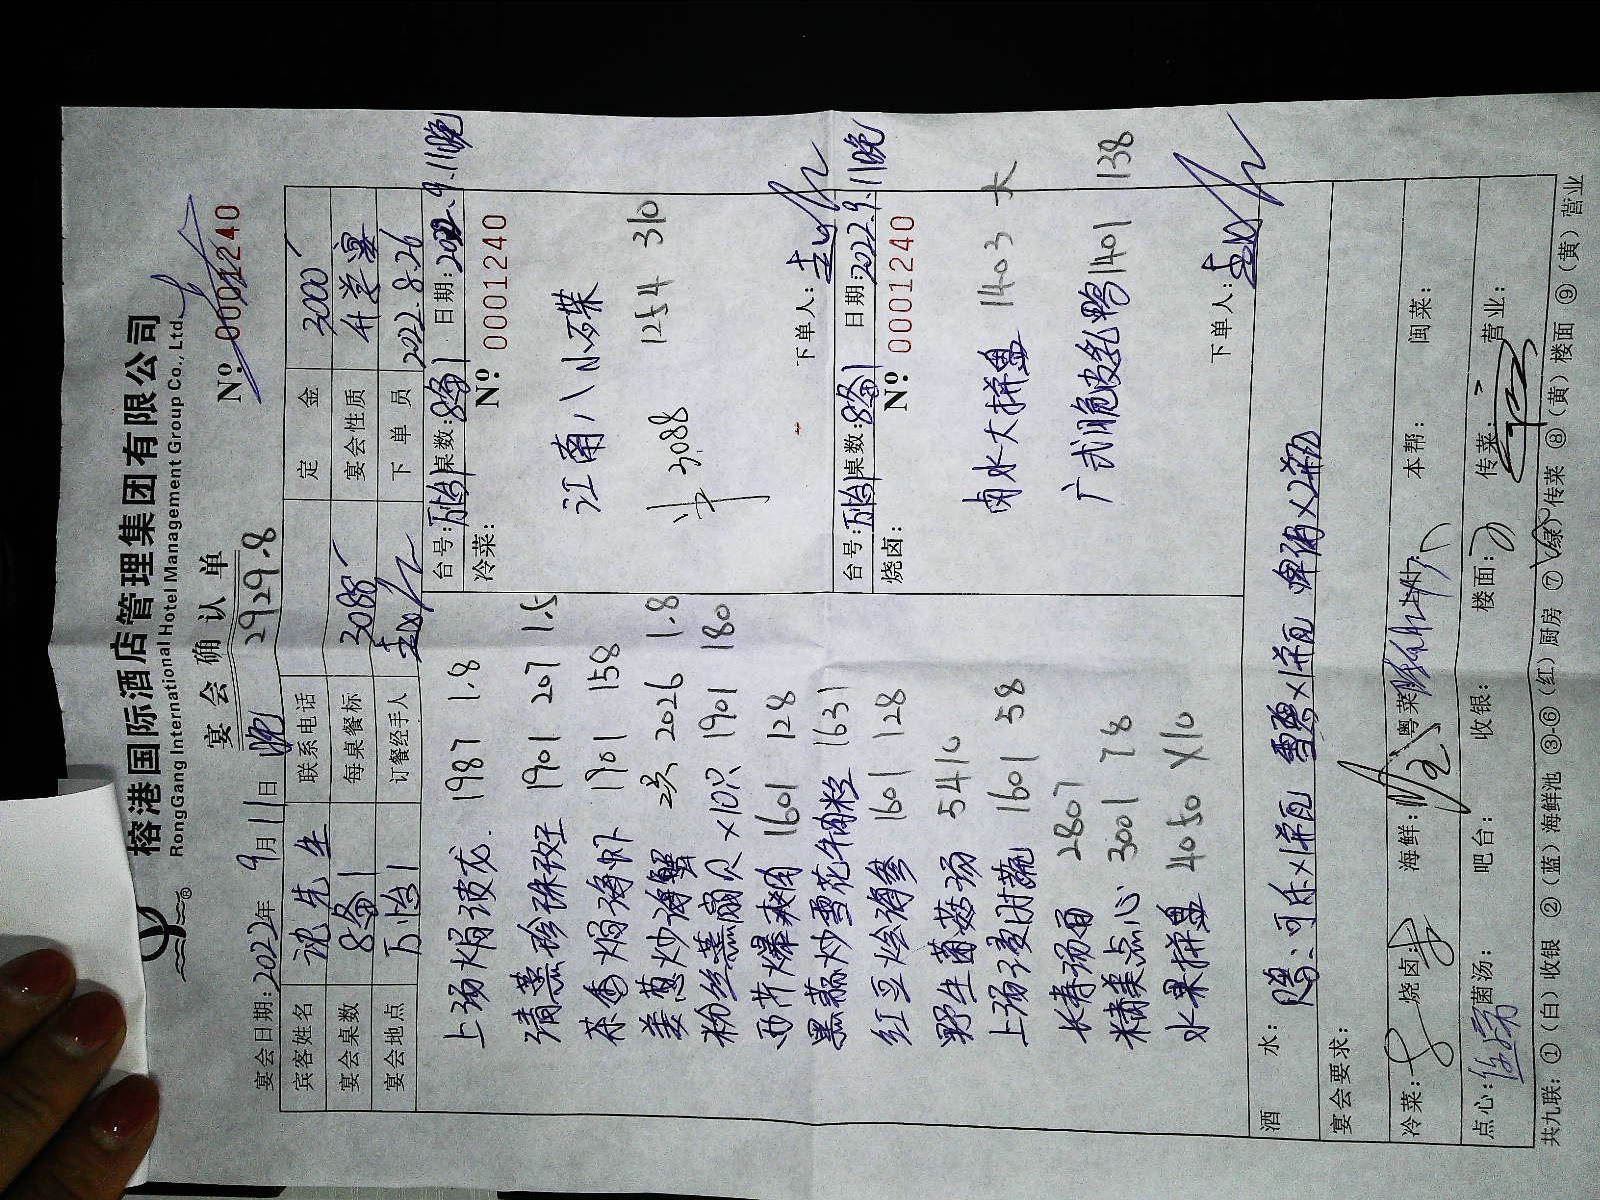 榕港国际酒店管理集团有限公司
RongGang International Hotel Management Group Co., Ltd.
宴会确认单
2929.8
No. 0001240
宴会日期: 2022年 9月11日 晚
宾客姓名 沈先生 联系电话 定金 3000
宴会桌数 8备1 每桌餐标 3088 宴会性质 升学宴
宴会地点 万怡1 订餐经手人 下单员 2022.8.26
上汤焗波龙 1987 1.8
清蒸珍珠斑 1901 207 1.5
茶香焗海虾 1901 158
姜葱炒海蟹 2只 2026 1.8
粉丝蒸扇贝×10只 1901 180
西芹爆爽肉 1601 128
黑蒜炒雪花牛肉粒 1631
红豆烩海参 1601 128
野生菌菇汤 5410
上汤浸时蔬 1601 58
长寿汤面 2807
精美点心 3001 78
水果拼盘 4050 ×10
台号: 万怡1 桌数: 8备1 日期: 2022.9.11晚
冷菜: No. 0001240
江南八小碟
1254 310
3088
下单人:
台号: 万怡1 桌数: 8备1 日期: 2022.9.11晚
烧卤: No. 0001240
卤水大拼盘 1403 大
广式脆皮乳鸭 1401 138
下单人:
酒水: 赠:可乐×1瓶 雪碧×1瓶 啤酒×2瓶
宴会要求:
冷菜: 烧卤: 海鲜: 粤菜: 本帮: 闽菜:
点心: 菌汤: 吧台: 收银: 楼面: 传菜: 营业:
共九联: ①(白)收银 ②(蓝)海鲜池 ③-⑥(红)厨房 ⑦(绿)传菜 ⑧(黄)楼面 ⑨(黄)营业